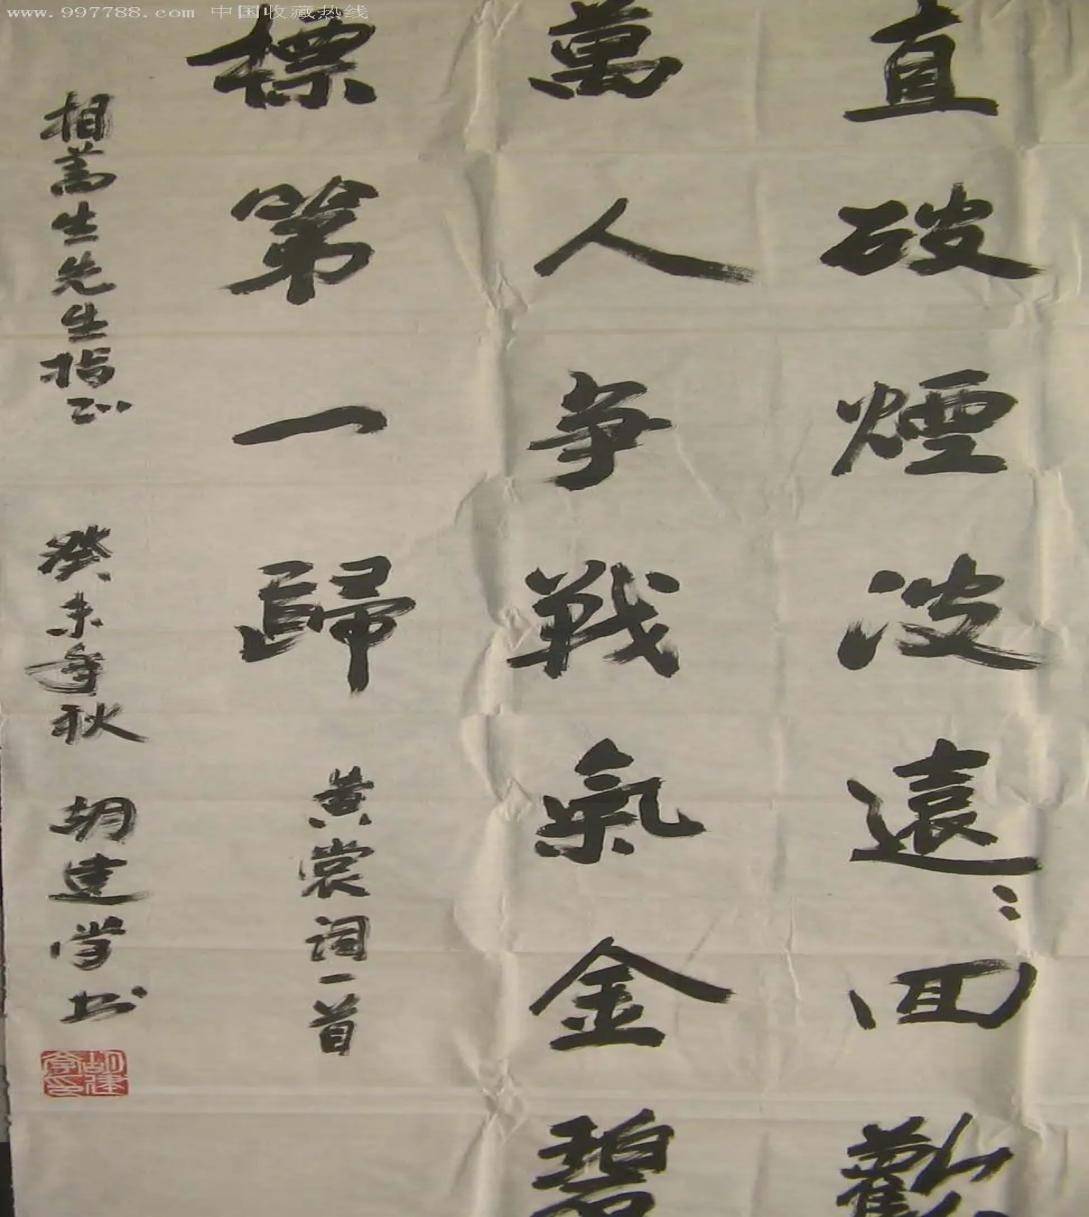 www.997788.com 中国收藏热线
直破煙波遠=回歡
萬人争戰氣金碧
標第一歸
黄裳词一首
相蒿生先生指正
癸未年秋 胡建学书
胡建學印